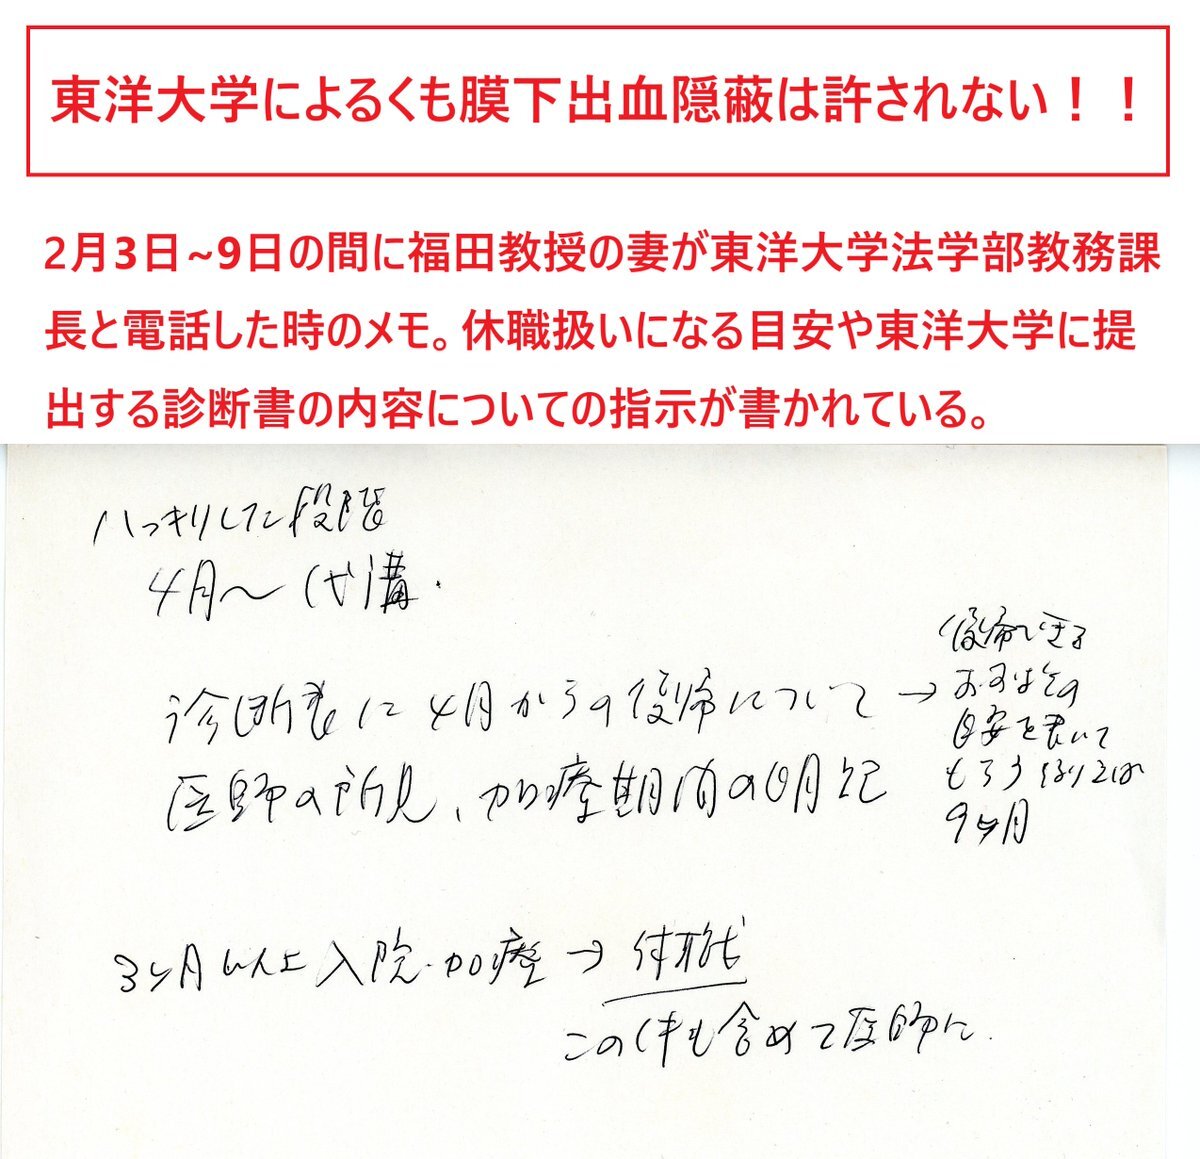 東洋大学によるくも膜下出血隠蔽は許されない！！
2月3日~9日の間に福田教授の妻が東洋大学法学部教務課
長と電話した時のメモ。休職扱いになる目安や東洋大学に提
出する診断書の内容についての指示が書かれている。
ハッキリした段階
4月〜代講.
診断書に4月からの復帰について→
医師の所見、加療期間の明記
復帰できる
およその
目安を書いて
もらう
9ヶ月
3ヶ月以上入院・加療→休職
この件も含めて医師に.